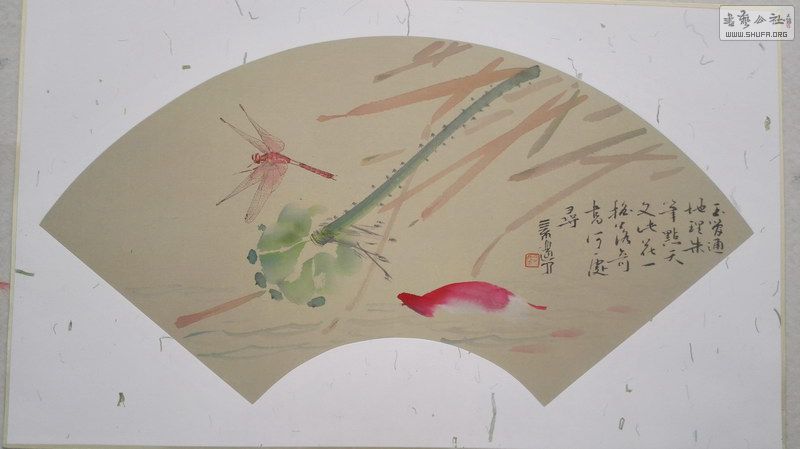 書藝公社
WWW.SHUFA.ORG
通
地理朱
筆點天
文此花一
落奇
何處
尋